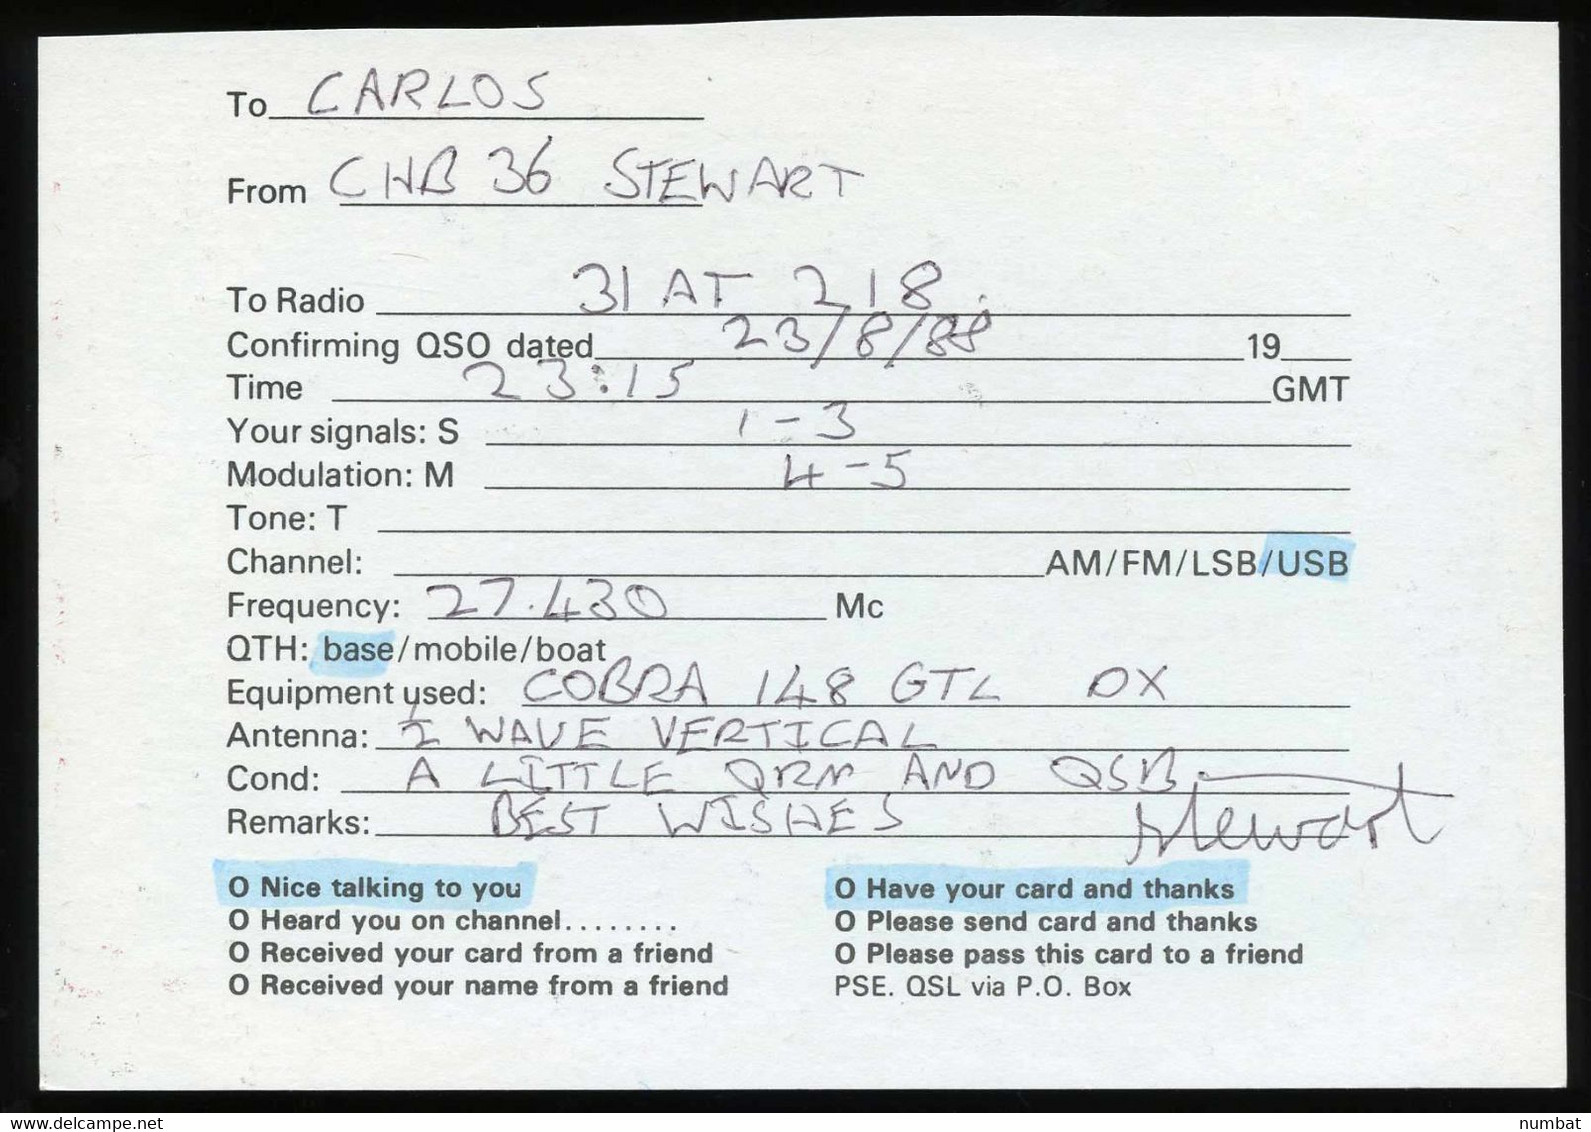 To CARLOS
From CHB 36 STEWART
To Radio 31 AT 218
Confirming QSO dated 23/8/88 19
Time 23:15 GMT
Your signals: S 1-3
Modulation: M 4-5
Tone: T
Channel: AM/FM/LSB/USB
Frequency: 27.430 Mc
QTH: base/mobile/boat
Equipment used: COBRA 148 GTL DX
Antenna: WAVE VERTICAL
Cond: A LITTLE QRM AND QSB
Remarks: BEST WISHES Stewart
O Nice talking to you O Have your card and thanks
O Heard you on channel........ O Please send card and thanks
O Received your card from a friend O Please pass this card to a friend
O Received your name from a friend PSE. QSL via P.O. Box
www.delcampe.net numbat